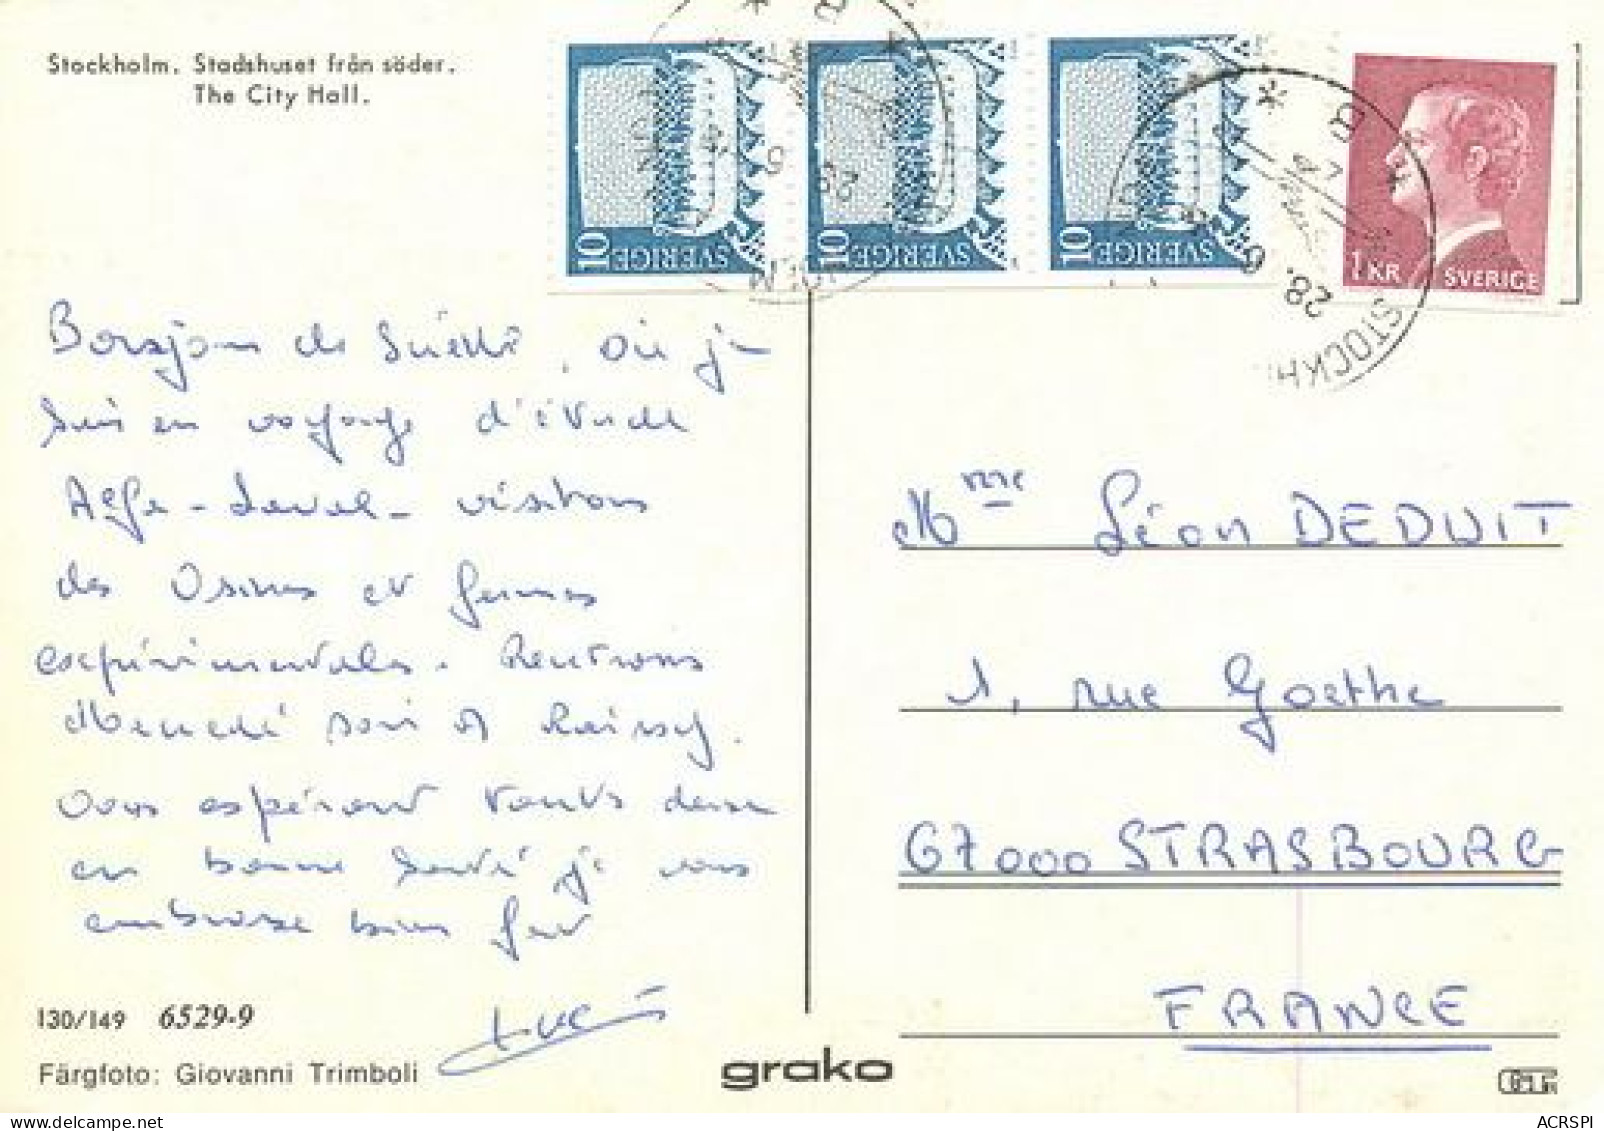 Stockholm. Stadshuset från söder.
The City Hall.
10 SVERIGE
10 SVERIGE
10 SVERIGE
1 KR SVERIGE
28. 6
STOCKH
Bonjour de Suède, où je
suis en voyage d'étude
Alfa-Laval - visitons
des Usines et fermes
expérimentales. Rentrons
Mercredi soir à Roissy.
Vous espérant toutes deux
en bonne santé je vous
embrasse bien fort
Mme Léon DEDUIT
1, rue Goethe
67000 STRASBOURG
FRANCE
130/149 6529-9
Färgfoto: Giovanni Trimboli
grako
ACRSPI